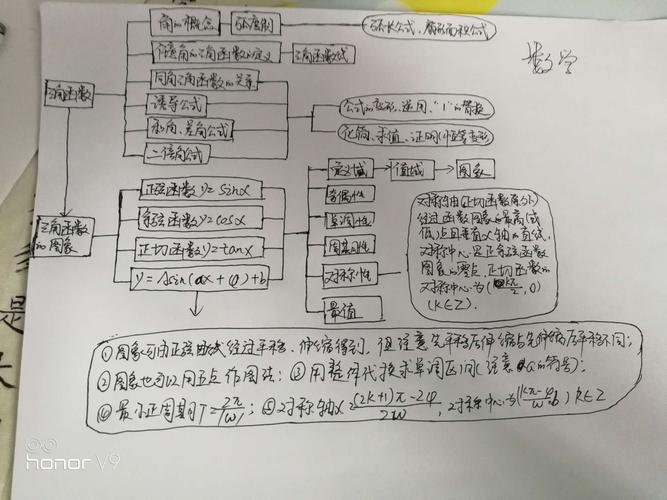 数学
角的概念
弧度制
弧长公式,扇形面积公式
任意角的三角函数的定义
三角函数线
三角函数
同角三角函数的关系
诱导公式
和角、差角公式
二倍角公式
公式的变形、逆用、"1"的替换
化简、求值、证明(恒等变形)
三角函数
的图象
正弦函数y=sinx
余弦函数y=cosx
正切函数y=tanx
y=Asin(ωx+φ)+b
定义域
值域
图象
奇偶性
单调性
周期性
对称性
最值
对称轴(正切函数除外)
经过函数图象的最高(或
低)点且垂直x轴的直线,
对称中心是正余弦函数
图象的零点,正切函数的
对称中心为(kπ/2,0)
(k∈Z).
①图象可由正弦曲线经过平移、伸缩得到,但注意先平移后伸缩与先伸缩后平移不同;
②图象也可以用五点作图法;③用整体代换求单调区间(注意ω的符号);
④最小正周期T=2π/|ω|;⑤对称轴x=(2k+1)π-2φ/2ω,对称中心为(kπ-φ/ω,b)k∈Z
honor V9